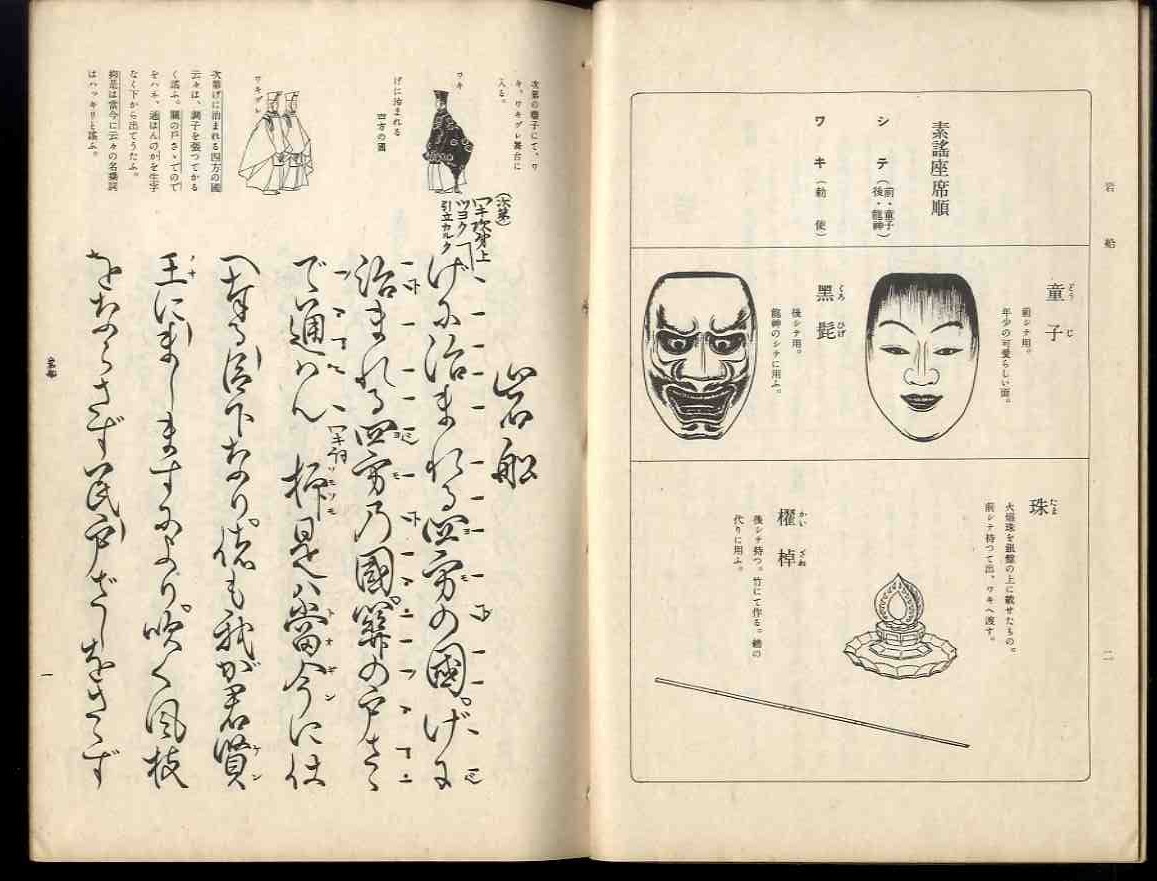 岩船
二
素謡座席順
シテ(前・童子 後・龍神)
ワキ(勅使)
童子
どうじ
前シテ用。
年少の可愛らしい面。
黒髭
くろひげ
後シテ用。
龍神のシテに用ふ。
珠
たま
火焔珠を銀盤の上に載せたもの。
前シテ持つて出、ワキへ渡す。
櫂棹
かいざお
後シテ持つ。竹にて作る。櫓の
代りに用ふ。
次第の囃子にて、ワ
キ、ワキヅレ舞台に
入る。
ワキ
げに治まれる
四方の國
ワキヅレ
次第げに治まれる四方の國
云々は、調子を張つてかる
く謡ふ。關の戸さゝでので
をハネ、通はんのかを生字
なく下から出てうたふ。
抑是は當今に云々の名乗詞
はハッキリと謡ふ。
岩船
(次第)
ワキ次第上
ツヨク
引立カルク
げに治まれる四方の國。げに
治まれる四方乃國。關の戸さゝ
で通はん
ワキ詞
抑是ハ當今に仕
へ奉る臣下なり。偖も我が君賢
王にましますにより。吹く風枝
をならさず民戸ざしをさゝず
岩船
一